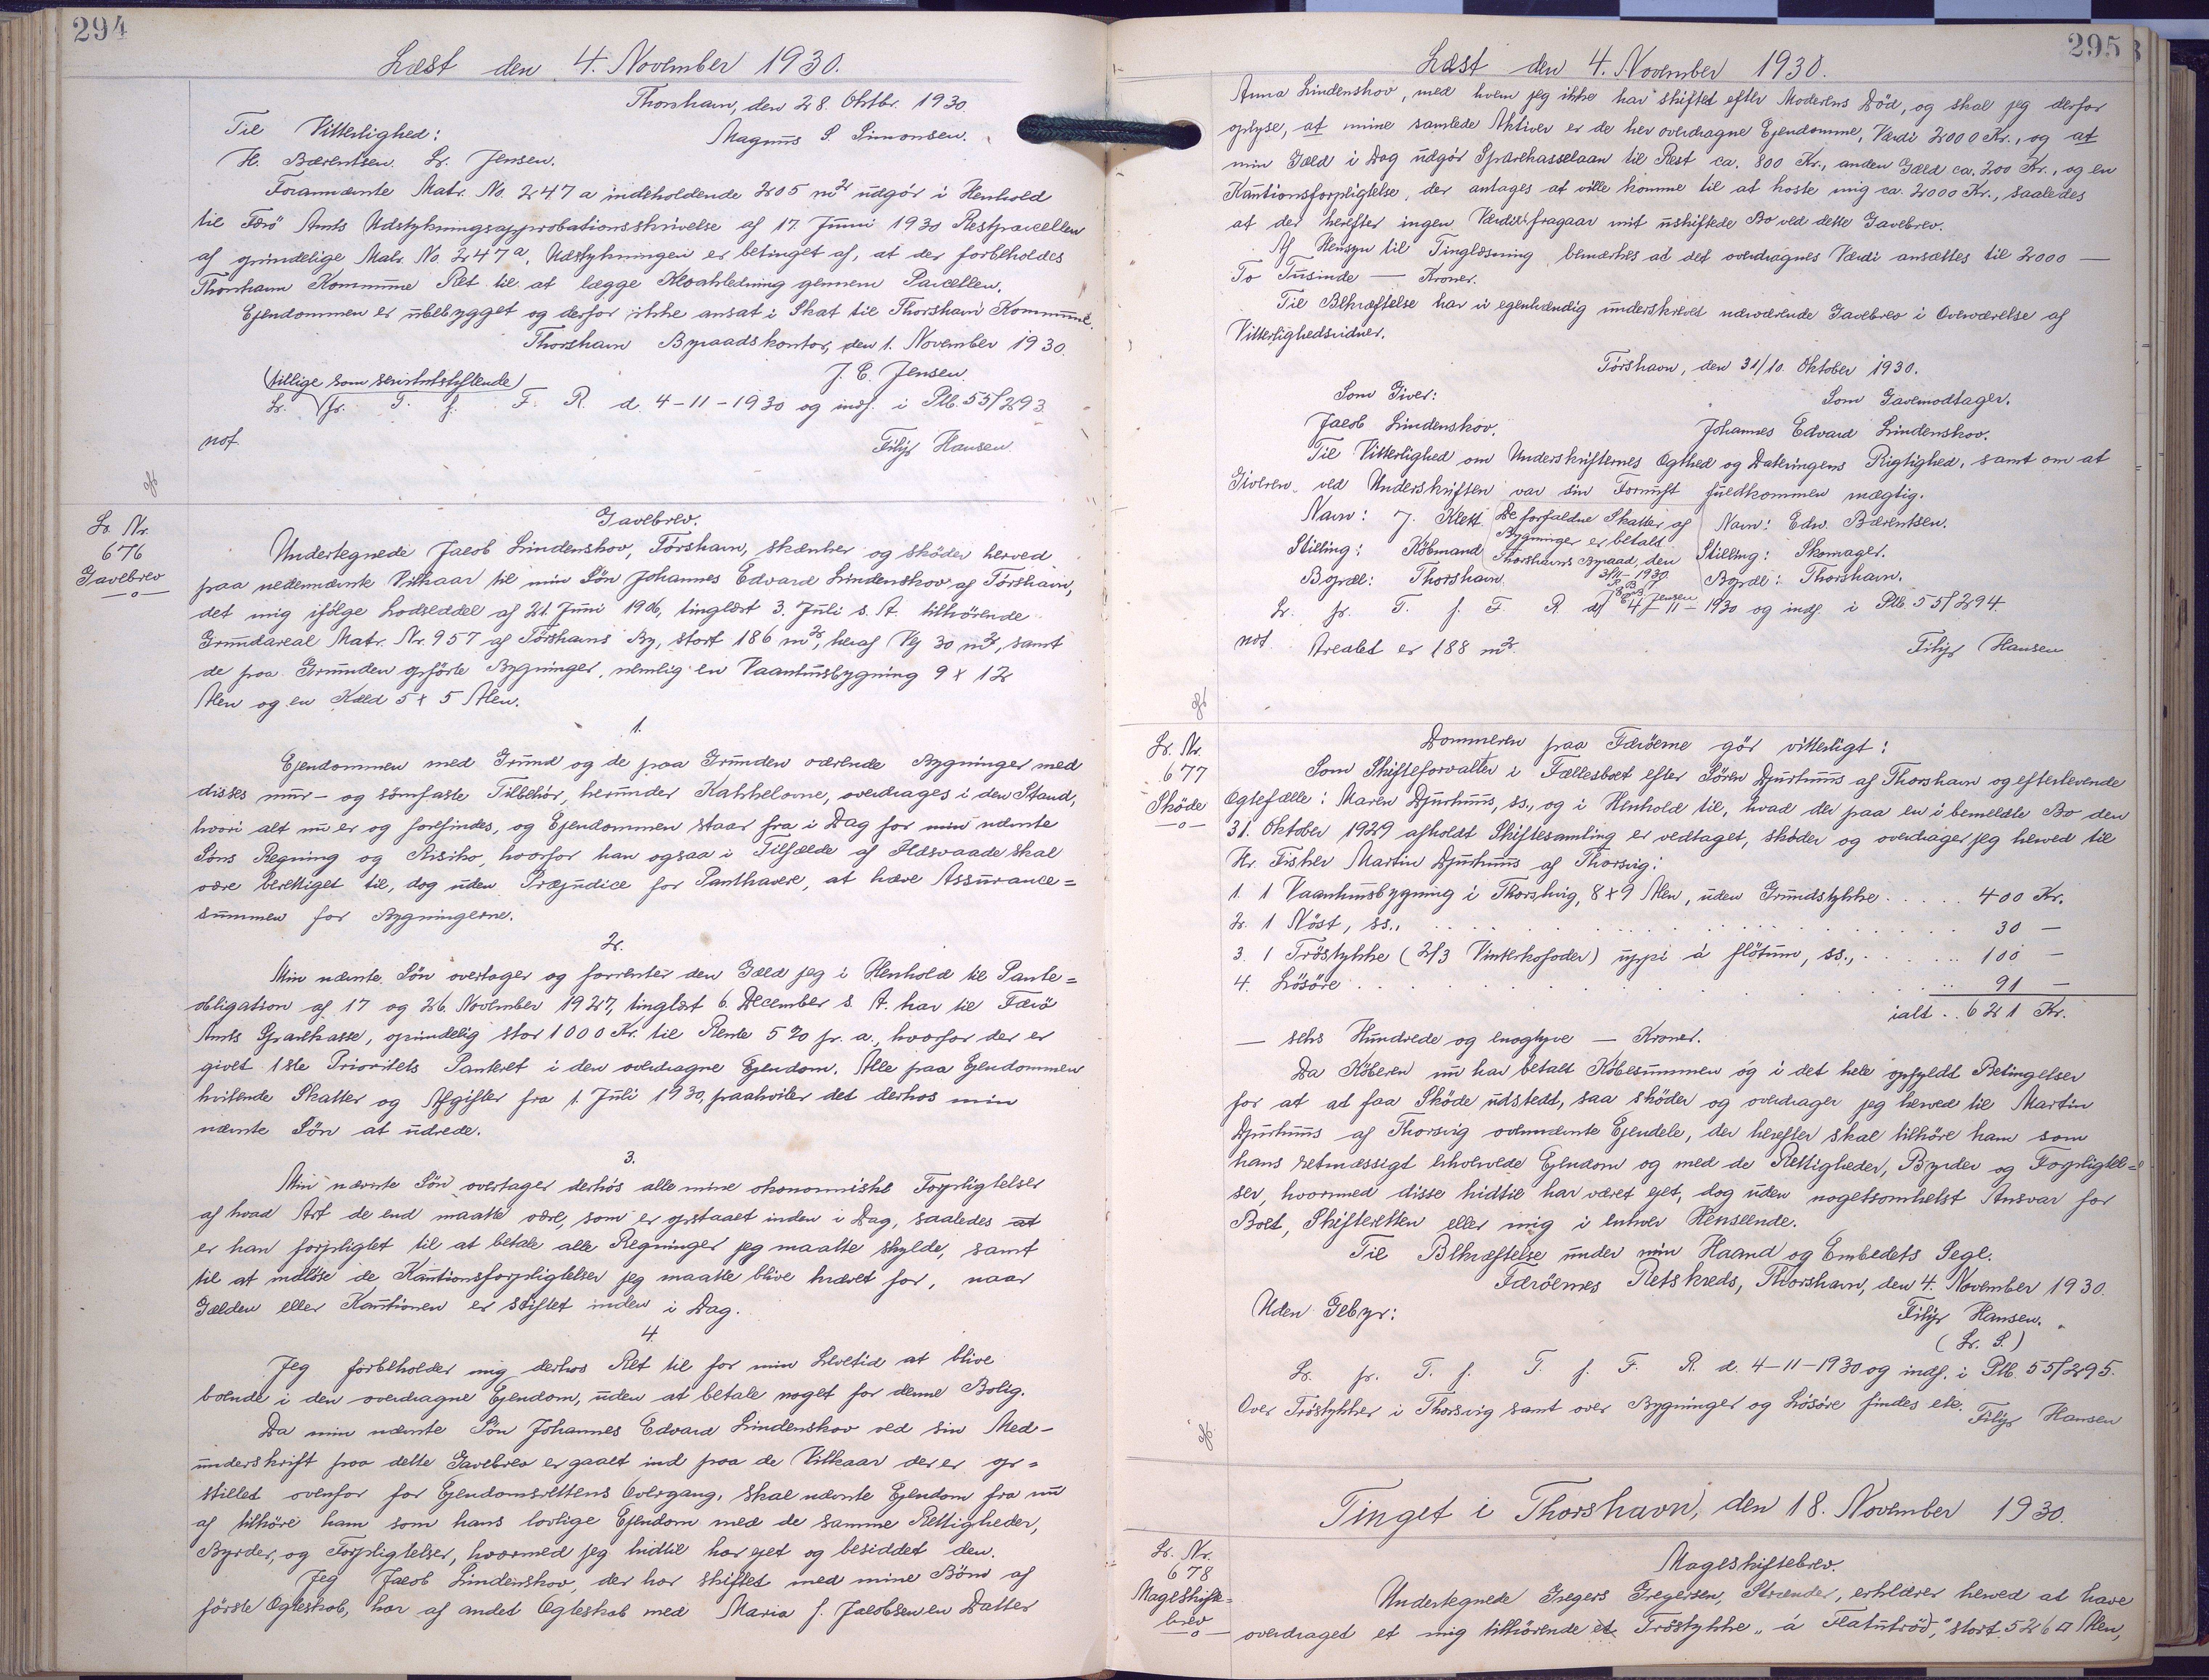 294
Læst den 4. November 1930.
Thorshavn, den 28. Oktbr. 1930
Til Vitterlighed:
Magnus S. Simonsen.
H. Bærentsen. Lr. Jensen.
Forannævnte Matr. No. 247a indeholdende 205 m² udgör i Henhold
til Færö Amts Udstykningsapprobationsskrivelse af 17. Juni 1930 Restparcellen
af grundelige Matr. No. 247a. Udstykningen er betinget af, at der forbeholdes
Thorshavn Kommune Ret til at lægge Kloakledning gennem Parcellen.
Ejendommen er ubebygget og derfor ikke ansat i Skat til Thorshavn Kommune.
Thorshavn Byraadskontor, den 1. November 1930.
J. C. Jensen.
(tillige som servitutstiftende)
Lr. fr. T. f. F. R. d. 4-11-1930 og indf. i Ptb. 55/293.
not
Filip Hansen.
Lr. Nr.
676
Gavebrev
Gavebrev.
Undertegnede Jacob Lindenskov, Törshavn, skænker og sköder herved
paa nedennævnte Vilkaar til min Sön Johannes Edvard Lindenskov af Törshavn,
det mig ifölge Lodseddel af 21. Juni 1906, tinglæst 3. Juli s. A. tilhörende
Grundareal Matr. Nr. 957 af Törshavns By, stort 186 m², heraf Vej 30 m², samt
de paa Grunden opförte Bygninger, nemlig en Vaanhusbygning 9 x 12
Alen og en Kæld 5 x 5 Alen.
1.
Ejendommen med Grund og de paa Grunden værende Bygninger med
disses mur- og sömfaste Tilbehör, herunder Kakkelovne, overdrages i den Stand,
hvori alt nu er og forefindes, og Ejendommen staar fra i Dag for min nævnte
Söns Regning og Risiko, hvorfor han ogsaa i Tilfælde af Ildsvaade skal
være berettiget til, dog uden Præjudice for Panthavere, at hæve Assurance=
summen for Bygningerne.
2.
Min nævnte Sön overtager og forrenter den Gæld jeg i Henhold til Pante=
obligation af 17 og 26. November 1927, tinglæst 6. December s. A. har til Færö
Amts Sparekasse, oprindelig stor 1000 Kr. til Rente 5% pr. a., hvorfor der er
givet 1ste Prioritets Panteret i den overdragne Ejendom. Alle paa Ejendommen
hvilende Skatter og Afgifter fra 1. Juli 1930, paahviler det derhos min
nævnte Sön at udrede.
3.
Min nævnte Sön overtager derhos alle mine økonomiske Forpligtelser
af hvad Art de end maatte være, som er opstaaet inden i Dag, saaledes at
er han forpligtet til at betale alle Regninger jeg maatte skylde, samt
til at indlöse de Kautionsforpligtelser jeg maatte blive krævet for, naar
Gælden eller Kautionen er stiftet inden i Dag.
4.
Jeg forbeholder mig derhos Ret til for min Levetid at blive
boende i den overdragne Ejendom, uden at betale noget for denne Bolig.
Da min nævnte Sön Johannes Edvard Lindenskov ved sin Med-
underskrift paa dette Gavebrev er gaaet ind paa de Vilkaar der er op=
stillet ovenfor for Ejendomsrettens Overgang, skal nævnte Ejendom fra nu
af tilhöre ham som hans lovlige Ejendom med de samme Rettigheder,
Byrder, og Forpligtelser, hvormed jeg hidtil har ejet og besiddet den.
Jeg Jacob Lindenskov, der har skiftet med mine Börn af
förste Ægteskab, har af andet Ægteskab med Maria f. Jacobsen en Datter
295
Læst den 4. November 1930.
Anna Lindenskov, med hvem jeg ikke har skiftet efter Moderens Död, og skal jeg derfor
oplyse, at mine samlede Aktiver er de her overdragne Ejendomme, Værdi 2000 Kr., og at
min Gæld i Dag udgör Sparekasselaan til Rest ca. 800 Kr., anden Gæld ca. 200 Kr., og en
Kautionsforpligtelse, der antages at ville komme til at koste mig ca. 2000 Kr., saaledes
at der herefter ingen Værdier fragaar mit uskiftede Bo ved dette Gavebrev.
Af Hensyn til Tinglæsning bemærkes at det overdragnes Værdi ansættes til 2000 —
To Tusinde — Kroner.
Til Bekræftelse har vi egenhændig underskrevet nærværende Gavebrev i Overværelse af
Vitterlighedsvidner.
Törshavn, den 31/10. Oktober 1930.
Som Giver:
Som Gavemodtager.
Jacob Lindenskov.
Johannes Edvard Lindenskov.
Til Vitterlighed om Underskrifternes Ægthed og Dateringens Rigtighed, samt om at
Giveren ved Underskriften var sin Fornuft fuldkommen mægtig.
Navn: J. Klett
De forfaldne Skatter af
Bygninger er betalt
Navn: Edv. Bærentsen.
Stilling: Köbmand
Thorshavns Byraad, den
Stilling: Skomager.
Bopæl: Thorshavn.
3/11-1930
Bopæl: Thorshavn.
Lr. fr. T. f. F. R. d. 4-11-1930 og indf. i Ptb. 55/294.
not. Arealet er 188 m².
Filip Hansen
Lr. Nr.
677
Sköde
Dommeren paa Færöerne gör vitterligt:
Som Skifteforvalter i Fællesboet efter Sören Djurhuus af Thorshavn og efterlevende
Ægtefælle: Maren Djurhuus, ss., og i Henhold til, hvad der paa en i bemeldte Bo den
31. Oktober 1929 afholdt Skiftesamling er vedtaget, sköder og overdrager jeg herved til
Hr. Fisker Martin Djurhuus af Thorsvig:
1. 1 Vaanhusbygning i Thorshvig, 8 x 9 Alen, uden Grundstykke . . . . . 400 Kr.
2. 1 Nöst, ss., . . . . . 30 —
3. 1 Tröstykke (2/3 Vinterkofoder) uppi á flötum, ss., . . . . . 100 —
4. Lösöre . . . . . 91 —
ialt . . 621 Kr.
— seks Hundrede og enogtyve — Kroner.
Da Köberen nu har betalt Köbesummen og i det hele opfyldt Betingelser
for at ad faa Sköde udstedt, saa sköder og overdrager jeg herved til Martin
Djurhuus af Thorsvig ovennævnte Ejendele, der herefter skal tilhöre ham som
hans retmæssigt erhvervede Ejendom og med de Rettigheder, Byrder og Forpligtel=
ser, hvormed disse hidtil har været ejet, dog uden nogetsomhelst Ansvar for
Boet, Skifteretten eller mig i enhver Henseende.
Til Bekræftelse under min Haand og Embedets Segl.
Færöernes Retskreds, Thorshavn, den 4. November 1930.
Uden Gebyr:
Filip Hansen.
(L. S.)
Lr. fr. T. f. T. f. F. R. d. 4-11-1930 og indf. i Ptb. 55/295.
Over Tröstykker i Thorsvig samt over Bygninger og Lösöre findes
Filip Hansen
Tinget i Thorshavn, den 18. November 1930.
Lr. Nr.
678
Mageskifte=
brev
Mageskiftebrev.
Undertegnede Gregers Gregersen, Strænder, erklærer herved at have
overdraget et mig tilhörende et Tröstykke „á Flatutröd", stort 526 □ Alen,